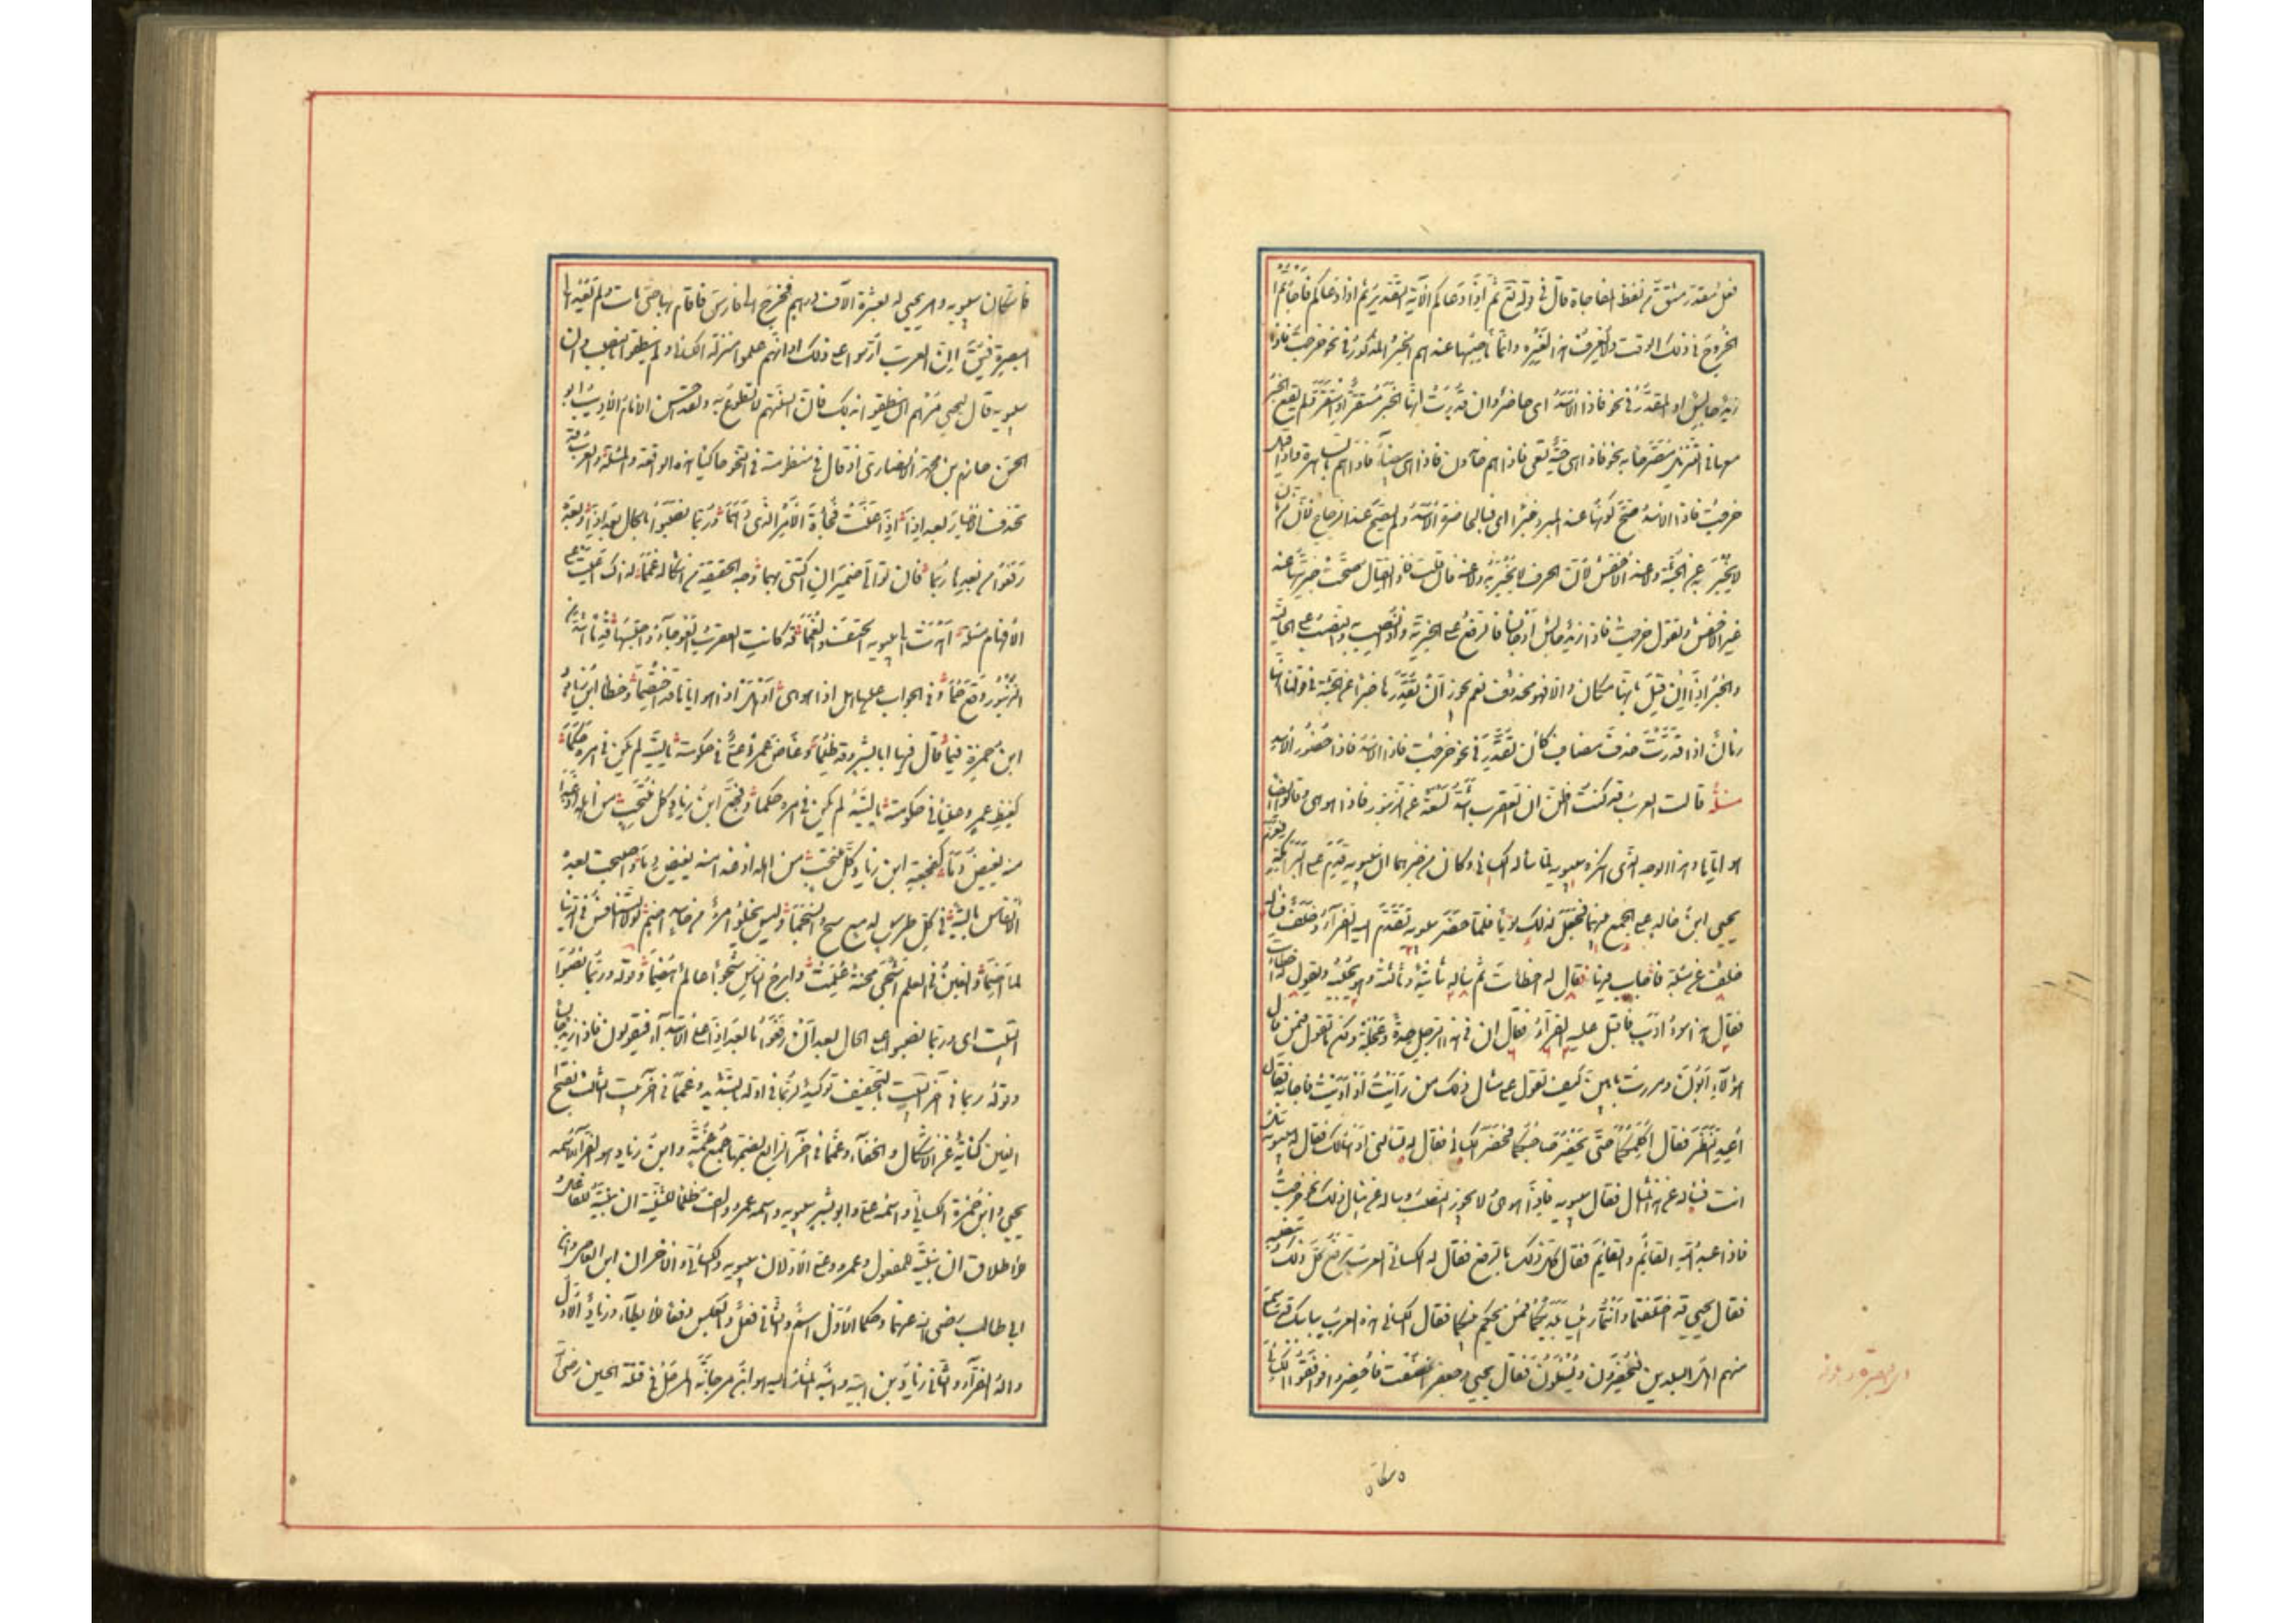 فعل مقدر مشتق من لفظ المفاجاة قال في قوله تع ثم اذا دعاكم الآية التقدير ثم اذا دعاكم فاجأتم
الخروج في ذلك الوقت ولا يعرف هذا لغيره وانما ناصبها عندهم الخبر المذكور في نحو خرجت فاذا
زيد جالس او المقدر في نحو فاذا الاسد اي حاضر وان قدرت انها الخبر فمستقر او استقر ولم يقع الخبر
معها في التنزيل الا مصرحا به نحو فاذا هي حية تسعى فاذا هم خامدون فاذا هي بيضاء فاذا هم بالساهرة واذا قيل
خرجت فاذا الاسد صح كونها عند المبرد خبرا اي فبالحاضرة الاسد ولم يصح عند الزجاج لان الزمان
لا يخبر به عن الجثة ولا عند الاخفش لان الحرف لا يخبر به ولا عنه فان قلت فاذا القتال صحت خبريتها عند
غير الاخفش وتقول خرجت فاذا زيد جالس او جالسا فالرفع على الخبرية واذا نصب به والنصب على الحالية
والخبر اذا ان قيل بانها مكان والا فهو محذوف نعم يجوز ان تقدرها خبرا عن الجثة مع قولنا انها
زمان اذا قدرت حذف مضاف كأن تقدر في نحو خرجت فاذا الاسد فاذا حضور الاسد
مسئلة قالت العرب قد كنت اظن ان العقرب اشد لسعة من الزنبور فاذا هو هي وقالوا ايضا
فاذا هو اياها وهذا الوجه الذي انكره سيبويه لما سأله الكسائي وكان من خبرهما ان سيبويه قدم على البرامكة
يحيى ابن خالد على الجمع بينهما فجعل لذلك يوما فلما حضر سيبويه تقدم اليه الفراء وخلف فسأله
خلف عن مسئلة فاجاب فيها فقال له اخطأت ثم سأله ثانية وثالثة وهو يجيبه ويقول له اخطأت
فقال هذا سوء ادب فاقبل عليه الفراء فقال ان في هذا الرجل حدة وعجلة ولكن ما تقول فيمن قال
هؤلاء ابون ومررت بابين كيف تقول على مثال ذلك من وأيت او أويت فاجابه فقال
أعد النظر فقال لست اكلمكما حتى يحضر صاحبكما فحضر الكسائي فقال له تسألني او اسألك فقال له سيبويه
انت فسأله عن هذا المثال فقال سيبويه فاذا هو هي ولا يجوز النصب وسأله عن امثال ذلك نحو خرجت
فاذا عبد الله القائم والقائم فقال كل ذلك بالرفع فقال له الكسائي العرب ترفع كل ذلك وتنصبه
فقال يحيى قد اختلفتما وانتما رئيسا بلديكما فمن يحكم بينكما فقال الكسائي هذه العرب ببابك قد سمع
منهم اهل البلدين فيحضرون ويسئلون فقال يحيى وجعفر انصفت فاحضروا فوافقوا الكسائي
فاستكان سيبويه وامر يحيى له بعشرة الآف درهم فخرج الى فارس فاقام بها حتى مات ولم يعد الى
البصرة فيقال ان العرب ارشوا على ذلك او انهم علموا منزلة الكسائي ولم ينطقوا بالنصب وان
سيبويه قال ليحيى مرهم ان ينطقوا بذلك فان السنتهم لا تطوع به ولقد احسن الامام الاديب ابو
الحسن حازم بن محمد الانصاري اذ قال في منظومته في النحو حاكيا هذه الواقعة والمسئلة والعرب قد
تحذف الاخبار بعد اذا اذا عنت فجأة الامر الذي دهما وربما نصبوا بالحال بعد اذا وربما
رفعوا من بعدها ربما فان توالى ضميران اكتسى بهما وجه الحقيقة من اشكاله غمما لذاك اعيت على
الافهام مسئلة اهدت الى سيبويه الحتف والغمما قد كانت العقرب العوجاء احسبها قدما اشد من
الزنبور وقع حما وفي الجواب عليها هل اذا هو هي او هل اذا هو اياها قد اختصما وخطأ ابن زياد و
ابن حمزة فيما قال فيها ابا بشر وقد ظلما وغاظ عمرا علي في حكومته يا ليته لم يكن في امره حكما
كغيظ عمرو عليا في حكومته يا ليته لم يكن في امره حكما وفجع ابن زياد كل منتحب من اهله اذ غدا
منه يفيض دما كفجعة ابن زياد كل منتخب من اهله اذ غدا منه يفيض دما واصبحت بعده
الانفاس باكية في كل طرس كدمع سح وانسجما وليس يخلو امرؤ من حاسد اضم لولا التنافس في الدنيا
لما اضما والغبن في العلم اشجى محنة علمت وابرح الناس شجوا عالم هضما وقوله وربما نصبوا
البيت اي وربما نصبوا على الحال بعد ان رفعوا ما بعد اذا على الابتداء فيقولون فاذا زيد جالسا
وقوله ربما في آخر البيت بالتخفيف توكيد لربما في اوله بالتشديد وغمما في آخر البيت الثالث بفتح
الغين كناية عن الاشكال والخفاء وغمما في آخر الرابع بضمها جمع غمة وابن زياد هو الفراء واسمه
يحيى وابن حمزة الكسائي واسمه علي وابو بشر سيبويه واسمه عمرو والف ظلما للتثنية ان بنيته للفاعل
وللاطلاق ان بنيته للمفعول وعمرو وعلي الاولان سيبويه والكسائي والآخران ابن العاص وابن
ابي طالب رضي الله عنهما وحكما الاول اسم والثاني فعل او بالعكس دفعا للايطاء وزياد الاول
والد الفراء والثاني زياد بن ابيه وابنه المشار اليه هو ابن مرجانة المرسل في قتلة الحسين رضي